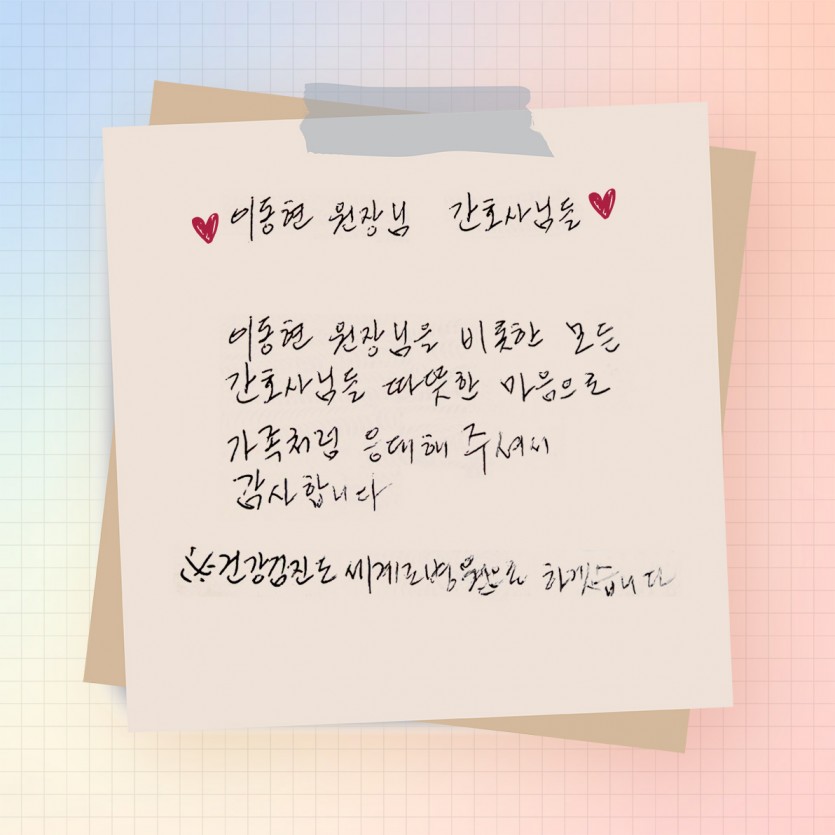 이동현 원장님 간호사님들
이동현 원장님을 비롯한 모든
간호사님들 따뜻한 마음으로
가족처럼 응대해 주셔서
감사합니다
※건강검진도 세계로병원으로 하겠습니다